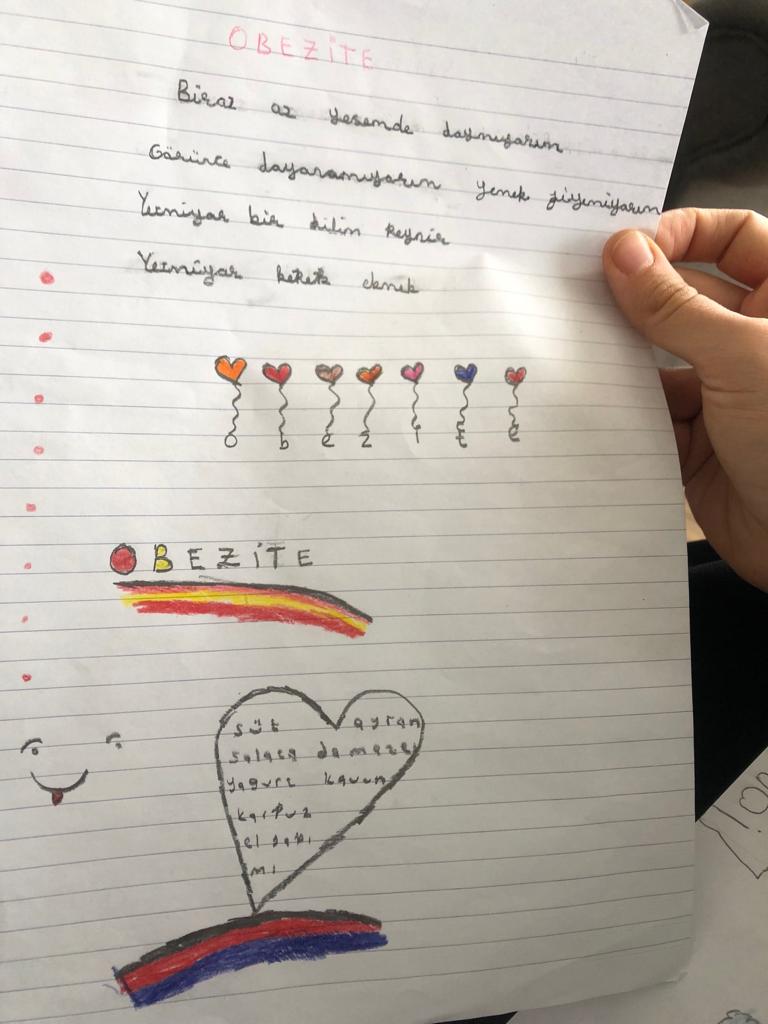 OBEZİTE
Biraz az yesemde doymuyorum
Görünce dayanamıyorum yemek yiyemiyorum
Yetmiyor bir dilim peynir
Yetmiyor kepek ekmek
o b e z i t e
OBEZİTE
süt ayran
salata domates
yogurt kavun
karpuz
el
mı